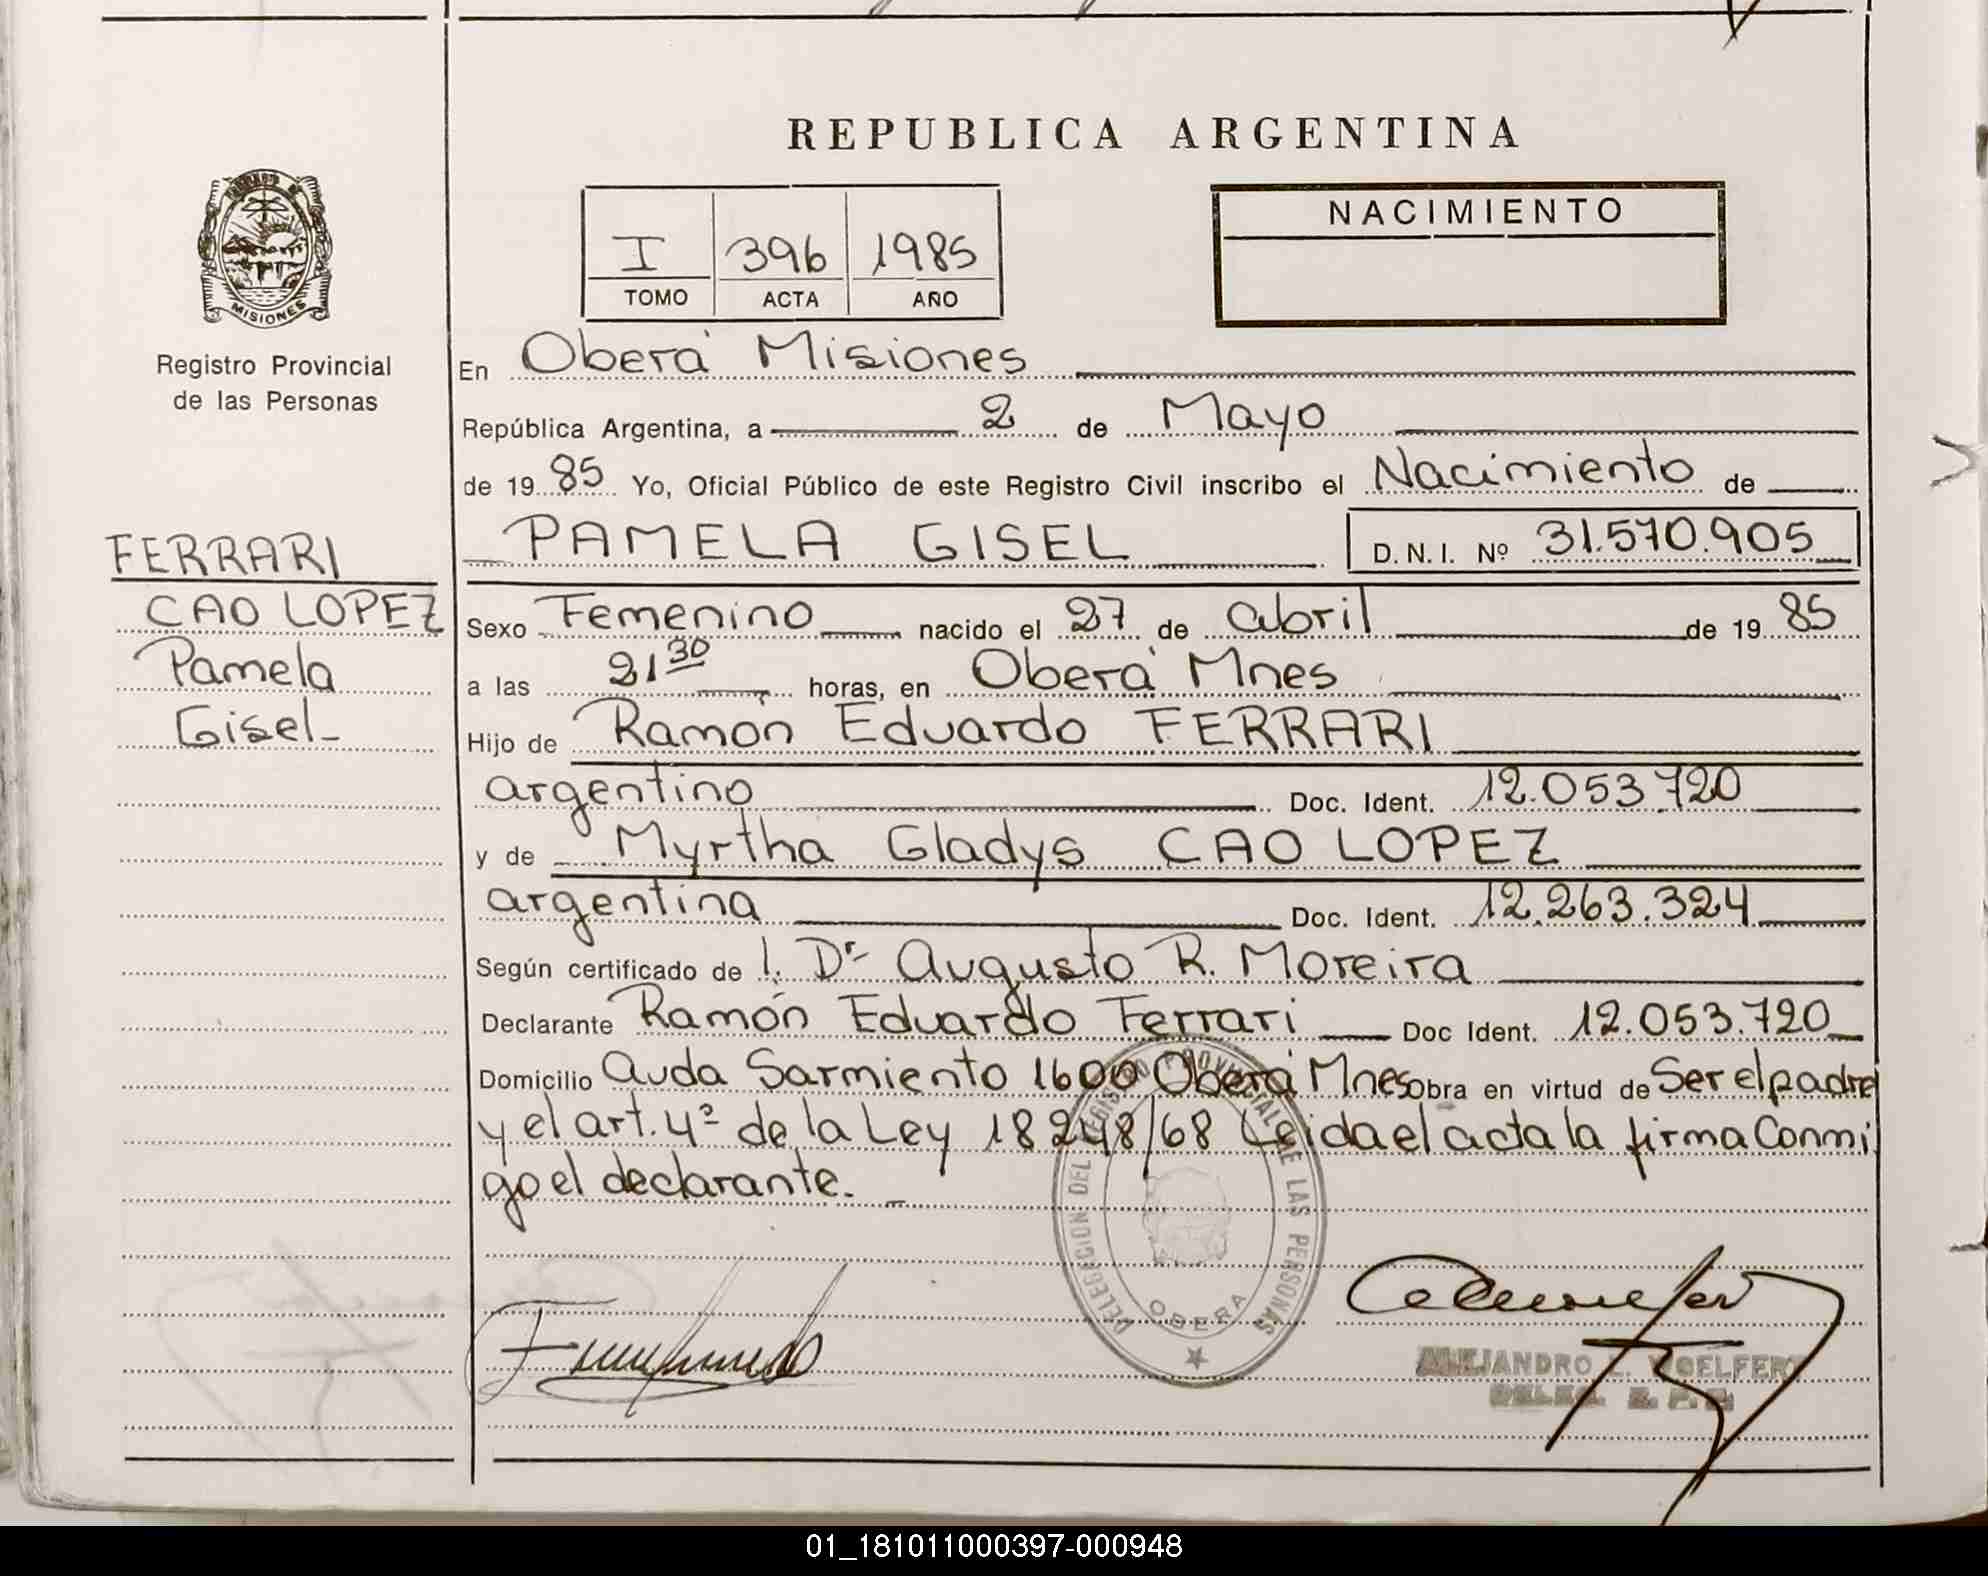 REPUBLICA ARGENTINA
MISIONES
Registro Provincial
de las Personas
I 396 1985
TOMO ACTA AÑO
NACIMIENTO
En Oberá Misiones
República Argentina, a 2 de Mayo
de 1985 Yo, Oficial Público de este Registro Civil inscribo el Nacimiento de
PAMELA GISEL D.N.I. Nº 31.570.905
FERRARI
CAO LOPEZ
Pamela
Gisel-
Sexo Femenino nacido el 27 de abril de 1985
a las 21 30 horas, en Oberá Mnes
Hijo de Ramón Eduardo FERRARI
argentino Doc. Ident. 12.053.720
y de Myrtha Gladys CAO LOPEZ
argentina Doc. Ident. 12.263.324
Según certificado de l. Dr Augusto R. Moreira
Declarante Ramón Eduardo Ferrari Doc Ident. 12.053.720
Domicilio Avda Sarmiento 1600 Oberá Mnes obra en virtud de Ser el padre
y el art. 4º de la Ley 18248/68 Leida el acta la firma Conmi
go el declarante.
DELEGACION DEL REGISTRO PROVINCIAL DE LAS PERSONAS
OBERA
ALEJANDRO E. WOELFERT
01_181011000397-000948